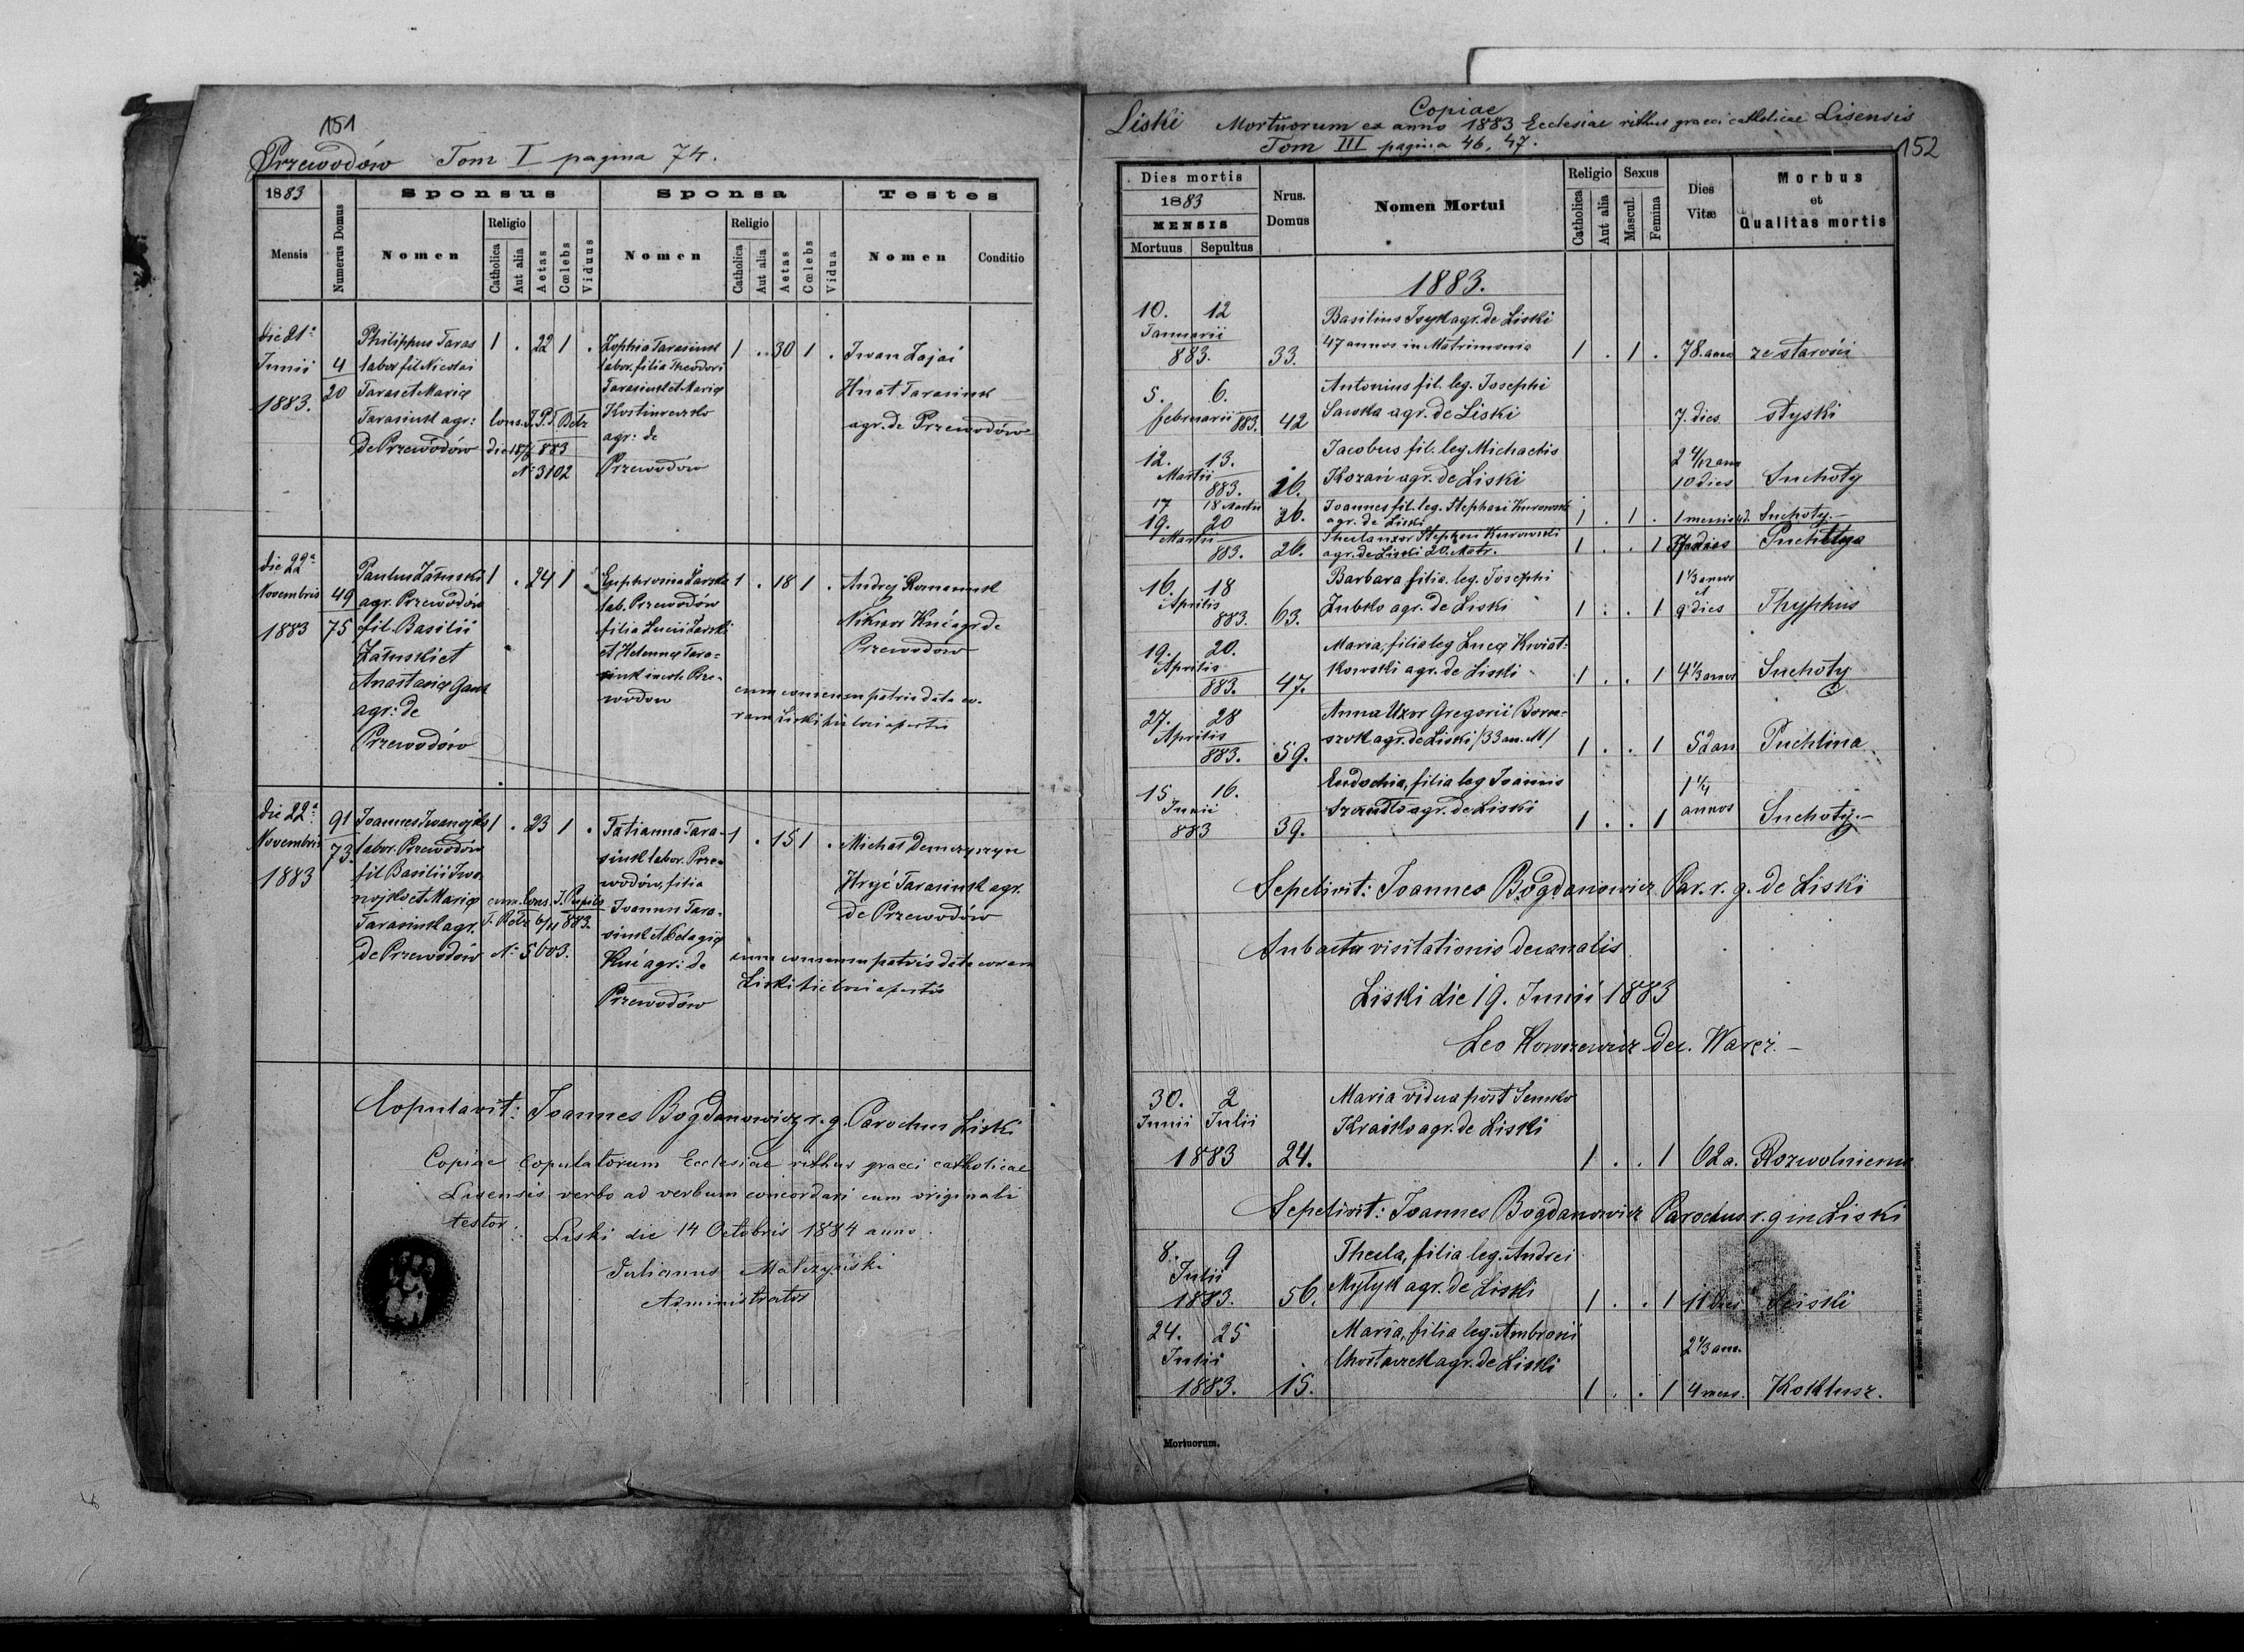 151
Przewodów Tom I pagina 74.
1883
Sponsus
Sponsa
Testes
Mensis
Numerus Domus
Nomen
Religio
Catholica
Aut alia
Aetas
Cœlebs
Viduus
Nomen
Religio
Catholica
Aut alia
Aetas
Cœlebs
Vidua
Nomen
Conditio
die 21a
Junii
1883.
4
20
Philippus Taras
labor. fil. Nicolai
Taras et Mariæ
Tarasiuk agr:
de Przewodów
1 . 22 1 .
Cons. J. P. T. Bełz
die 18/7 883
N: 3102
Zophia Tarasiuk
labor. filia Theodori
Tarasiuk et Mariæ
agr: de
Przewodów
1 . 30 1 .
Iwan Zając
Hnat Tarasiuk
agr. de Przewodów
die 22a
Novembris
1883
49
75
Paulus Załuski
agr. Przewodów
fil. Basilii
Załuski et
Anastasiæ Gauk
agr: de
Przewodów
1 . 24 1
Euphrosina Żarska
lab. Przewodów
filia Lucii Żarski
et Helennæ Tara-
siuk incole Prze-
wodow
1 . 18 1 .
Andrej Romaniuk
Nikior Kuć agr. de
Przewodow
cum consensu patris data co-
ram Liski hic loci apertis
die 22a
Novembris
1883
91
73.
Joannes Iwanojko
labor. Przewodów
fil Basilii Iwa-
nojko et Mariæ
Tarasiuk agr.
de Przewodów
1 . 23 1 .
cum. Cons. J. Pupils
T. Bełz 6/11 883.
N: 5603.
Tatianna Tara-
siuk labor. Prze-
wodów, filia
Joannis Tara-
siuk et Pelagiæ
Kuć agr: de
Przewodów
1 . 15 1 .
Michał Demczyszyn
Hryć Tarasiuk agr.
de Przewodów
cum consensu patris data coram
Liski hic loci apertis
Copulavit: Joannes Bogdanowicz r. g. Parochus Liski
Copiae copulatorum Ecclesiae rithus graeci catholicae
Lisensis verbo ad verbum concordari cum originali
testor:
Liski die 14 Octobris 1884 anno.
Julianus Malczyński
Administrator
Copiae
Liski Mortuorum ex anno 1883 Ecclesiae rithus graeci catholicae Lisensis
Tom III pagina 46, 47.
152
Dies mortis
1883
MENSIS
Mortuus
Sepultus
Nrus.
Domus
Nomen Mortui
Religio
Catholica
Aut alia
Sexus
Mascul.
Femina
Dies
Vitæ
Morbus
et
Qualitas mortis
1883.
10. 12 Basilius Isyk agr. de Liski
Januarii 47 annos in Matrimonio
883. 33. 1 . 1 . 78. anns ze starości
5. 6. Antonius fil. leg. Josephi
februarii 883. 42 Sawka agr. de Liski 7. dies styski
12. 13. Jacobus fil. leg Michaelis 2 4/12 ann
Martii 883. 26. Kozań agr. de Liski 10 dies Suchoty
17 18 Martii 26. Joannes fil. leg. Stephani Kurowski 1 . 1 . 1 mensis Suchoty.-
agr. de Liski
19. 20 Thecla uxor Stephani Kurowski
Martii 883. 26. agr. de Liski 20. Matr. 1 . . 1
16. 18 Barbara filia. leg. Josephi 1 1/3 annos
Aprilis et
883. 63. Zubko agr. de Liski 1 . . 1 9 dies Thyphus
19. 20. Maria, filia leg Lucæ Kwiat-
Aprilis 883. 47. kowski agr. de Liski 1 . . 1 4 1/3 annos Suchoty
27. 28 Anna Uxor Gregorii Borow-
Aprilis 883. 59. szok agr. de Liski /33 an. M/ 1 . . 1 52 an Puchlina
15. 16. Eudochia, filia leg Joannis 1 1/4
Junii agr. de Liski annos
883 39. 1 . . 1 Suchoty.-
Sepelivit: Joannes Bogdanowicz Par. r. g. de Liski
In b actu visitationis decanalis
Liski die 19. Junii 1883
Leo Kowszewicz dec. Waręż.-
30. 2 Maria vidua post Semko
Junii Julii Kraiko agr. de Liski
1883 24. 1 . . 1 62 a. Rozwolnienie
Sepelivit: Joannes Bogdanowicz Parochus r. g in Liski
8. 9 Thecla, filia leg. Andrei
Julii Mytyk agr. de Liski
1883. 56. 1 . . 1 11 dies
24. 25 Maria, filia leg. Ambrosii 2 1/3 ann.
Julii agr. de Liski
1883. 15. 1 . . 1 4 mens. Kokłusz.
Mortuorum.